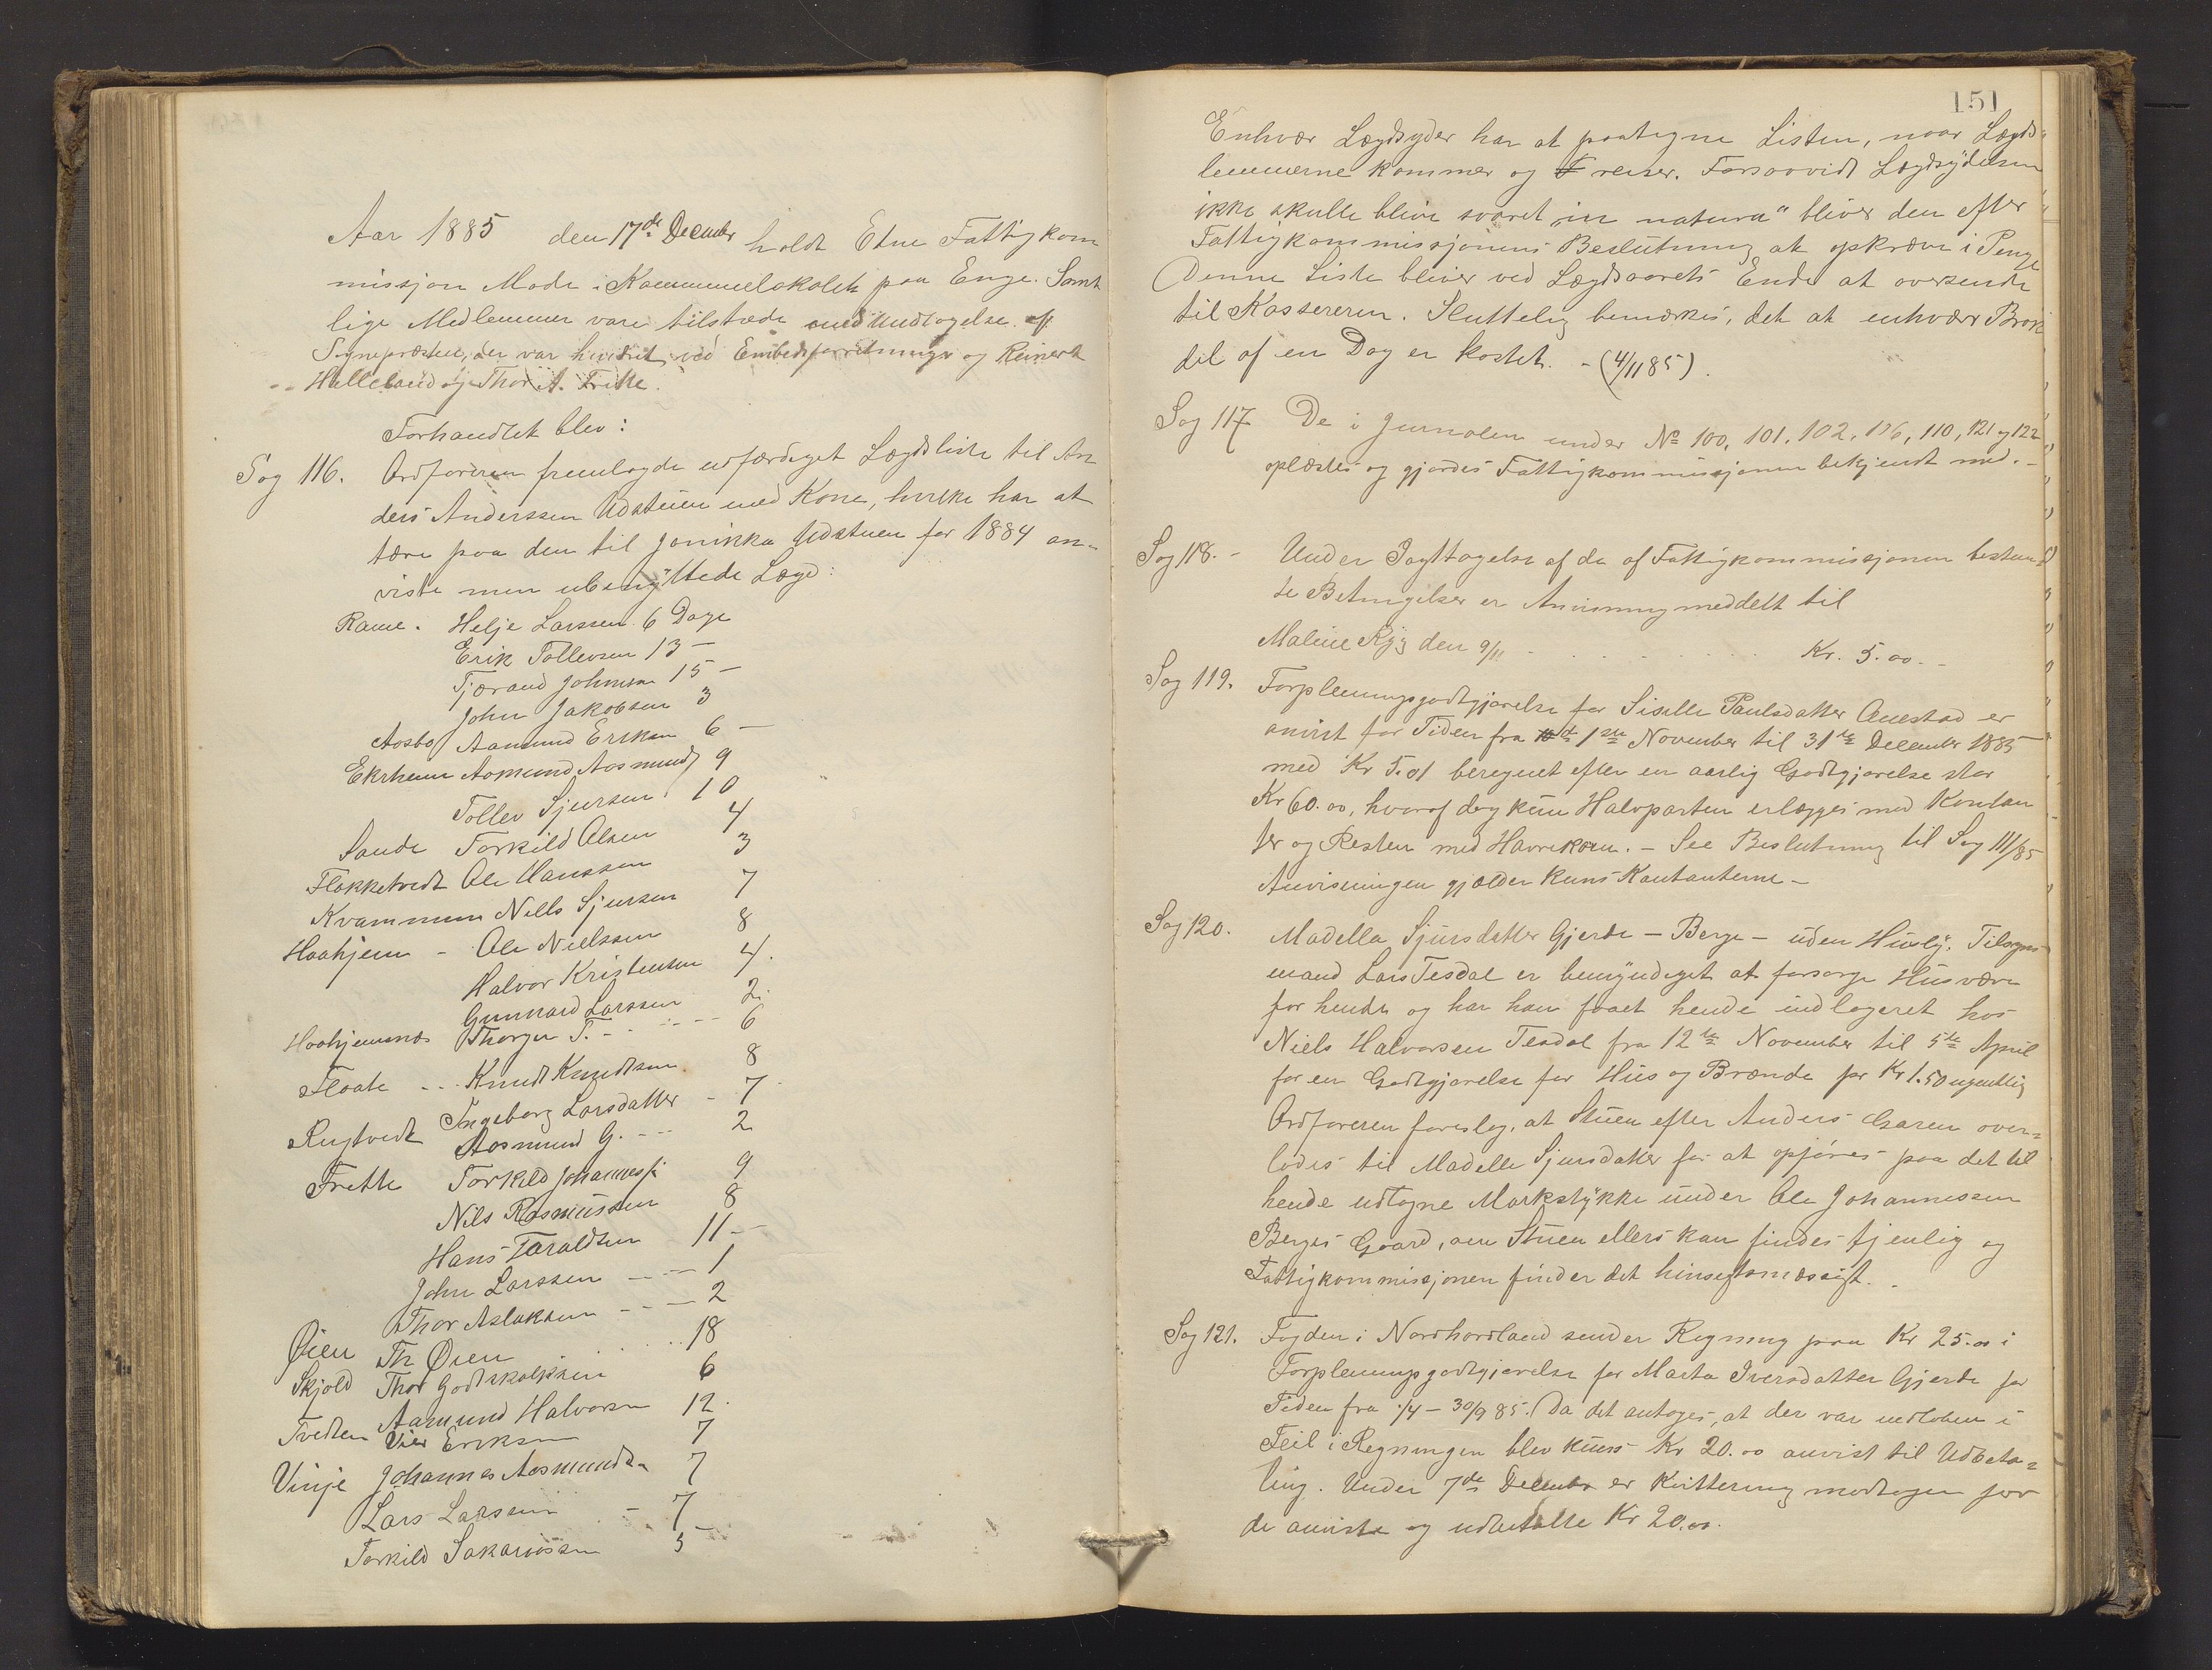 Aar 1885 den 17de December holdt Etne Fattigkom
missjon Møde i Kommunelokalet paa Enge. Samt
lige Medlemmer vare tilstæde med Undtagelse af
Sognepræsten, der var hindret ved Embedsforretninger og Reinert
Helleland og Thor A. Frette.
Forhandlet blev:
Sag 116. Ordføreren fremlagde udfærdiget Lægdsliste til An
ders Anderssen Udstuen med Kone, hvilke har at
tære paa den til Jonikka Udstuen for 1884 an-
viste men ubenyttede Lægd:
Rame. Helje Larssen 6 Dage
Erik Tollevsen 13 —
Tjærand Johnsen 15 —
John Jakobsen 3
Aasbø Aamund Eriksen 6 —
Ekrheim Aamund Aasmunds 9
Tollev Sjursen 10
Sande Torkild Olsen 4
Flokketvedt Ole Hanssen 3
Kvammen Nills Sjursen 7
Haahjem - Ole Nielssen 8
Halvor Kristensen 4.
Gunnard Larssen 2.
Haahjemsnæs Thorger T. - - - - 6
Floate - - - Knudt Knudtsen 8
Rygtvedt Ingeborg Larsdatter - 7
Aasmund G. - - - 2
Frette Torkild Johannesss. 9
Nils Rasmussen 8
Hans Taraldsen 11 —
John Larssen - - - 1
Thor Aslaksen - - - 2
Øien Th Øien . . . 18
Skjold Thor Godtskalksen 6
Tvedten Aamund Halvorsen 12.
Vier Eriksen 7
Vinje Johannes Aasmundsen 7
Lars Larssen - 7
Torkild Sakariassen 5
151
Enhver Lægdsyder har at paategne Listen, naar Lægds-
lemmerne kommer og reiser. Forsaavidt Lægdsydelsen
ikke skulle blive svaret „in natura" bliver den efter
Fattigkommissjonens Beslutning at opkræve i Penge
Denne Liste bliver ved Lægdsaarets Ende at oversende
til Kassereren. Sluttelig bemærkes, det at enhver Brøk
del af en Dag er kostet. - (4/11 85).
Sag 117 De i Jurnalen under No 100, 101, 102, 106, 110, 121 og 122
oplæstes og gjordes Fattigkommissjonen bekjendt med. -
Sag 118. - Under Iagttagelse af de af Fattigkommissjonen bestem
te Betingelser er Anvisning meddelt til
Maline Ryg den 9/11 - . . . . . . . Kr. 5.00. -
Sag 119. Forpleiningsgodtgjørelse for Siselle Paulsdatter Onestad er
anvist for Tiden fra 1ste November til 31te December 1885
med Kr 5.01 beregnet efter en aarlig Godtgjørelse stor
Kr 60.00, hvoraf dog kun Halvparten erlægges med Kontan
ter og Resten med Havrekorn. - See Beslutning til Sag 111/85
Anvisningen gjælder kuns Kontanterne -
Sag 120. Madella Sjursdatter Gjerde - Berge - uden Husly. Tilsyns-
mand Lars Tesdal er bemyndiget at forsørge Husvære
for hende og har han faaet hende indlogeret hos
Niels Halvorsen Tesdal fra 12te November til 5te April
for en Godtgjørelse for Hus og Brænde pr Kr 1.50 ugentlig
Ordføreren foreslog, at Stuen efter Anders Garen over-
lodes til Madelle Sjursdatter for at opføres paa det til
hende udtagne Markstykke under Ole Johannessen
Berges Gaard, om Stuen ellers kan findes tjenlig og
Fattigkommissjonen finder det hensigtsmæssigt. -
Sag 121. Fogden i Nordhordland sender Regning paa Kr 25.00 i
Forpleiningsgodtgjørelse for Marta Iversdatter Gjerde for
Tiden fra 1/4 - 30/9 85. Da det antages, at der var indløben i
Feil i Regningen blev kuns Kr 20.00 anvist til Udbeta-
ling. Under 7de December er Kvittering modtagen for
de anviste og udbetalte Kr 20.00.